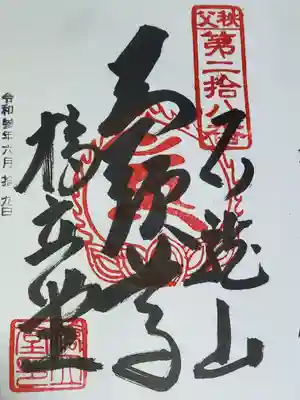 秩父
第二拾八番
石龍山
馬頭尊
橋立堂
令和年六月拾九日